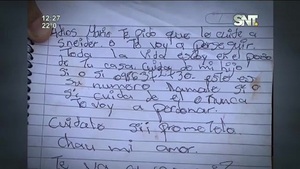 12:27
22°
SNT
Adios Marie Te pido que le cuide a
Sneider o Te voy a perseguir
Toda la vida estoy en el patio
de Tu casa cuida de mi hijo
Si o Si este es
Su numero llamale Si o
Si cuida de el o nunca
Te voy a perdonar.
Cuidalo Sii prometelo.
Chau mi amor.